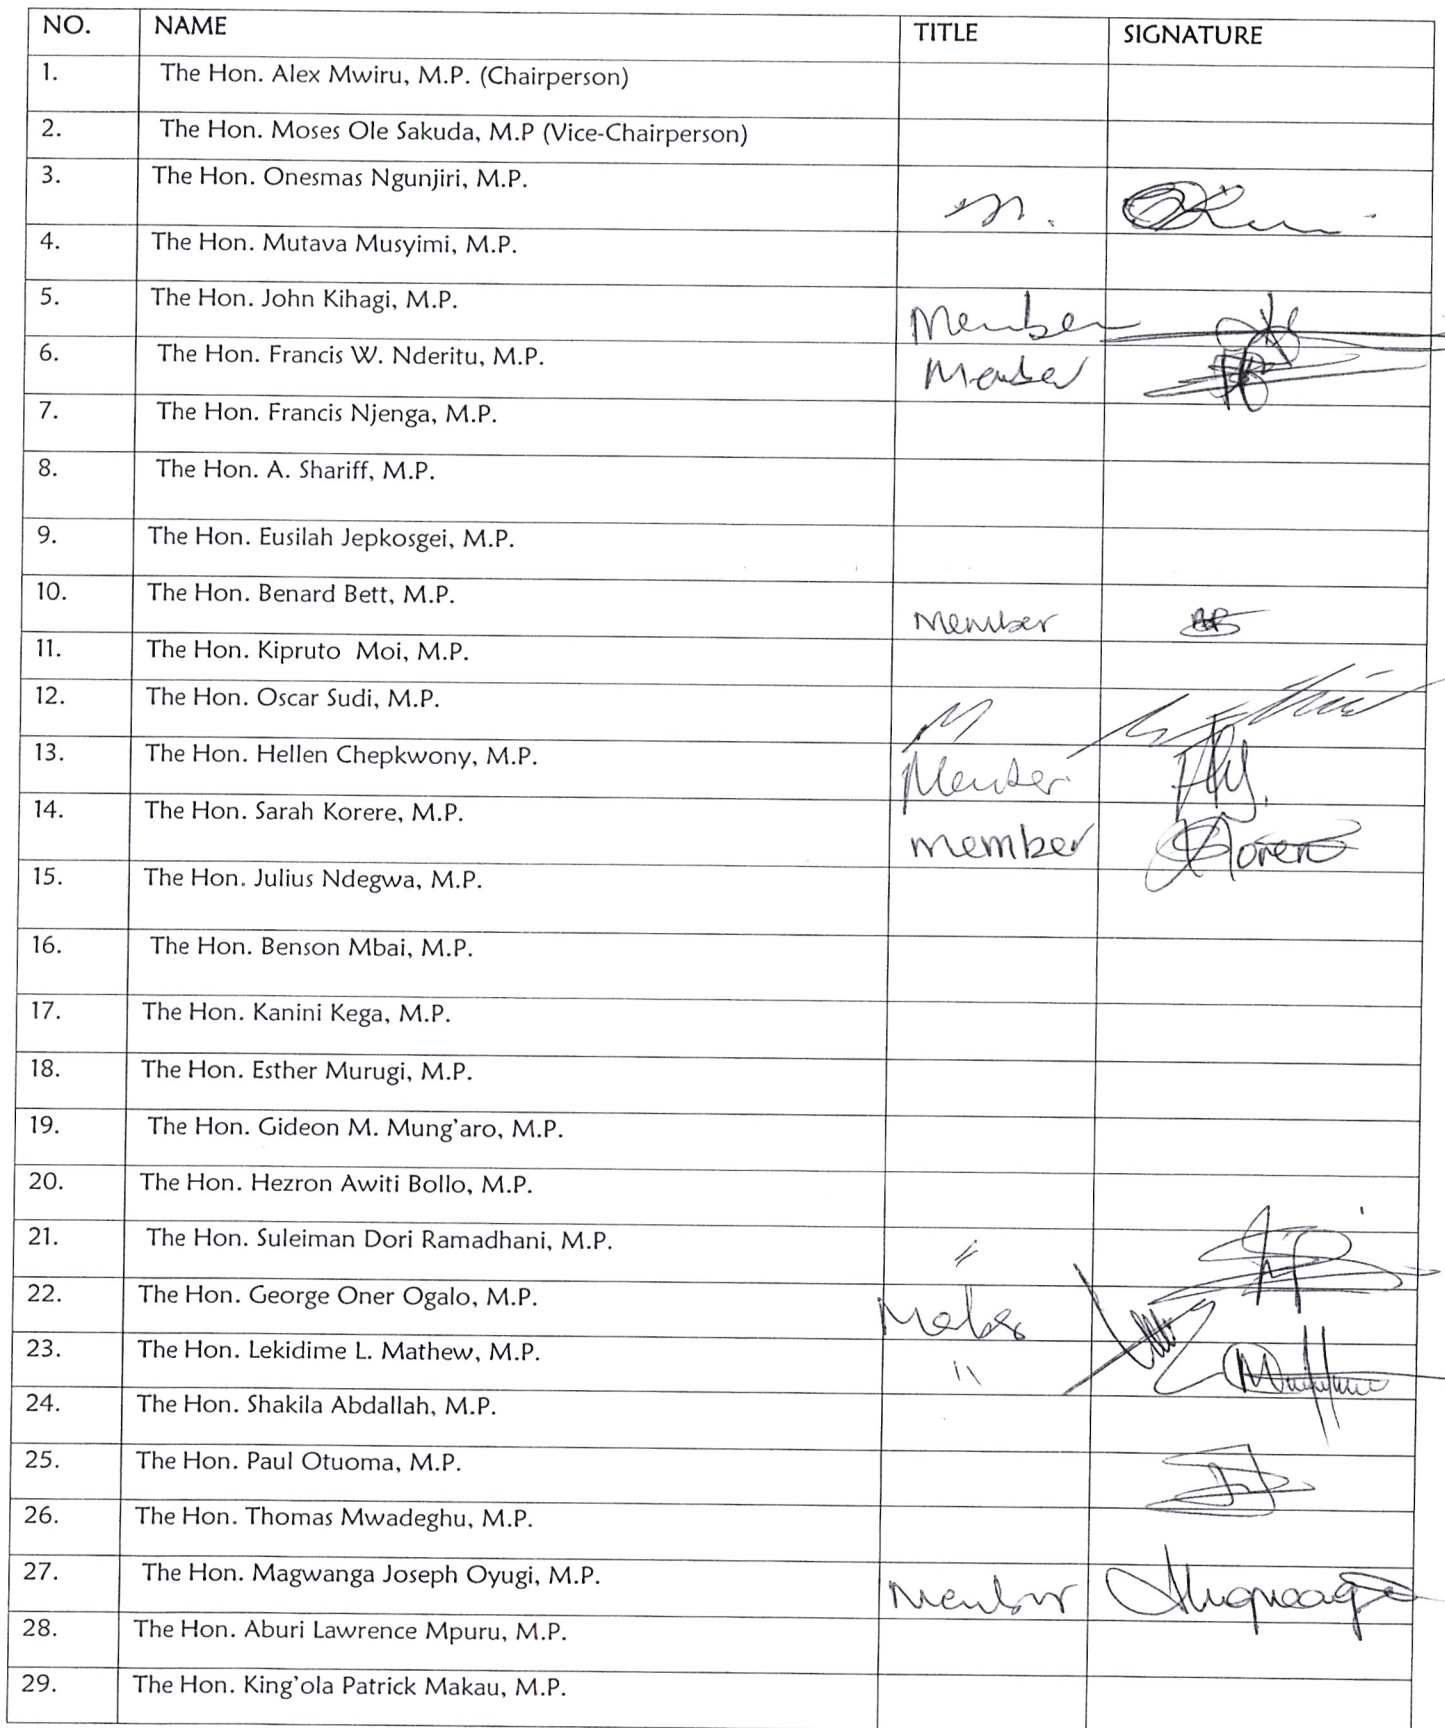 NO. NAME TITLE SIGNATURE
1. The Hon. Alex Mwiru, M.P. (Chairperson)
2. The Hon. Moses Ole Sakuda, M.P (Vice-Chairperson)
3. The Hon. Onesmas Ngunjiri, M.P. M.
4. The Hon. Mutava Musyimi, M.P.
5. The Hon. John Kihagi, M.P. Member
6. The Hon. Francis W. Nderitu, M.P. Member
7. The Hon. Francis Njenga, M.P.
8. The Hon. A. Shariff, M.P.
9. The Hon. Eusilah Jepkosgei, M.P.
10. The Hon. Benard Bett, M.P. Member
11. The Hon. Kipruto Moi, M.P.
12. The Hon. Oscar Sudi, M.P. M
13. The Hon. Hellen Chepkwony, M.P. Member
14. The Hon. Sarah Korere, M.P. member
15. The Hon. Julius Ndegwa, M.P.
16. The Hon. Benson Mbai, M.P.
17. The Hon. Kanini Kega, M.P.
18. The Hon. Esther Murugi, M.P.
19. The Hon. Gideon M. Mung'aro, M.P.
20. The Hon. Hezron Awiti Bollo, M.P.
21. The Hon. Suleiman Dori Ramadhani, M.P. "
22. The Hon. George Oner Ogalo, M.P.
23. The Hon. Lekidime L. Mathew, M.P. "
24. The Hon. Shakila Abdallah, M.P.
25. The Hon. Paul Otuoma, M.P.
26. The Hon. Thomas Mwadeghu, M.P.
27. The Hon. Magwanga Joseph Oyugi, M.P. Member
28. The Hon. Aburi Lawrence Mpuru, M.P.
29. The Hon. King'ola Patrick Makau, M.P.